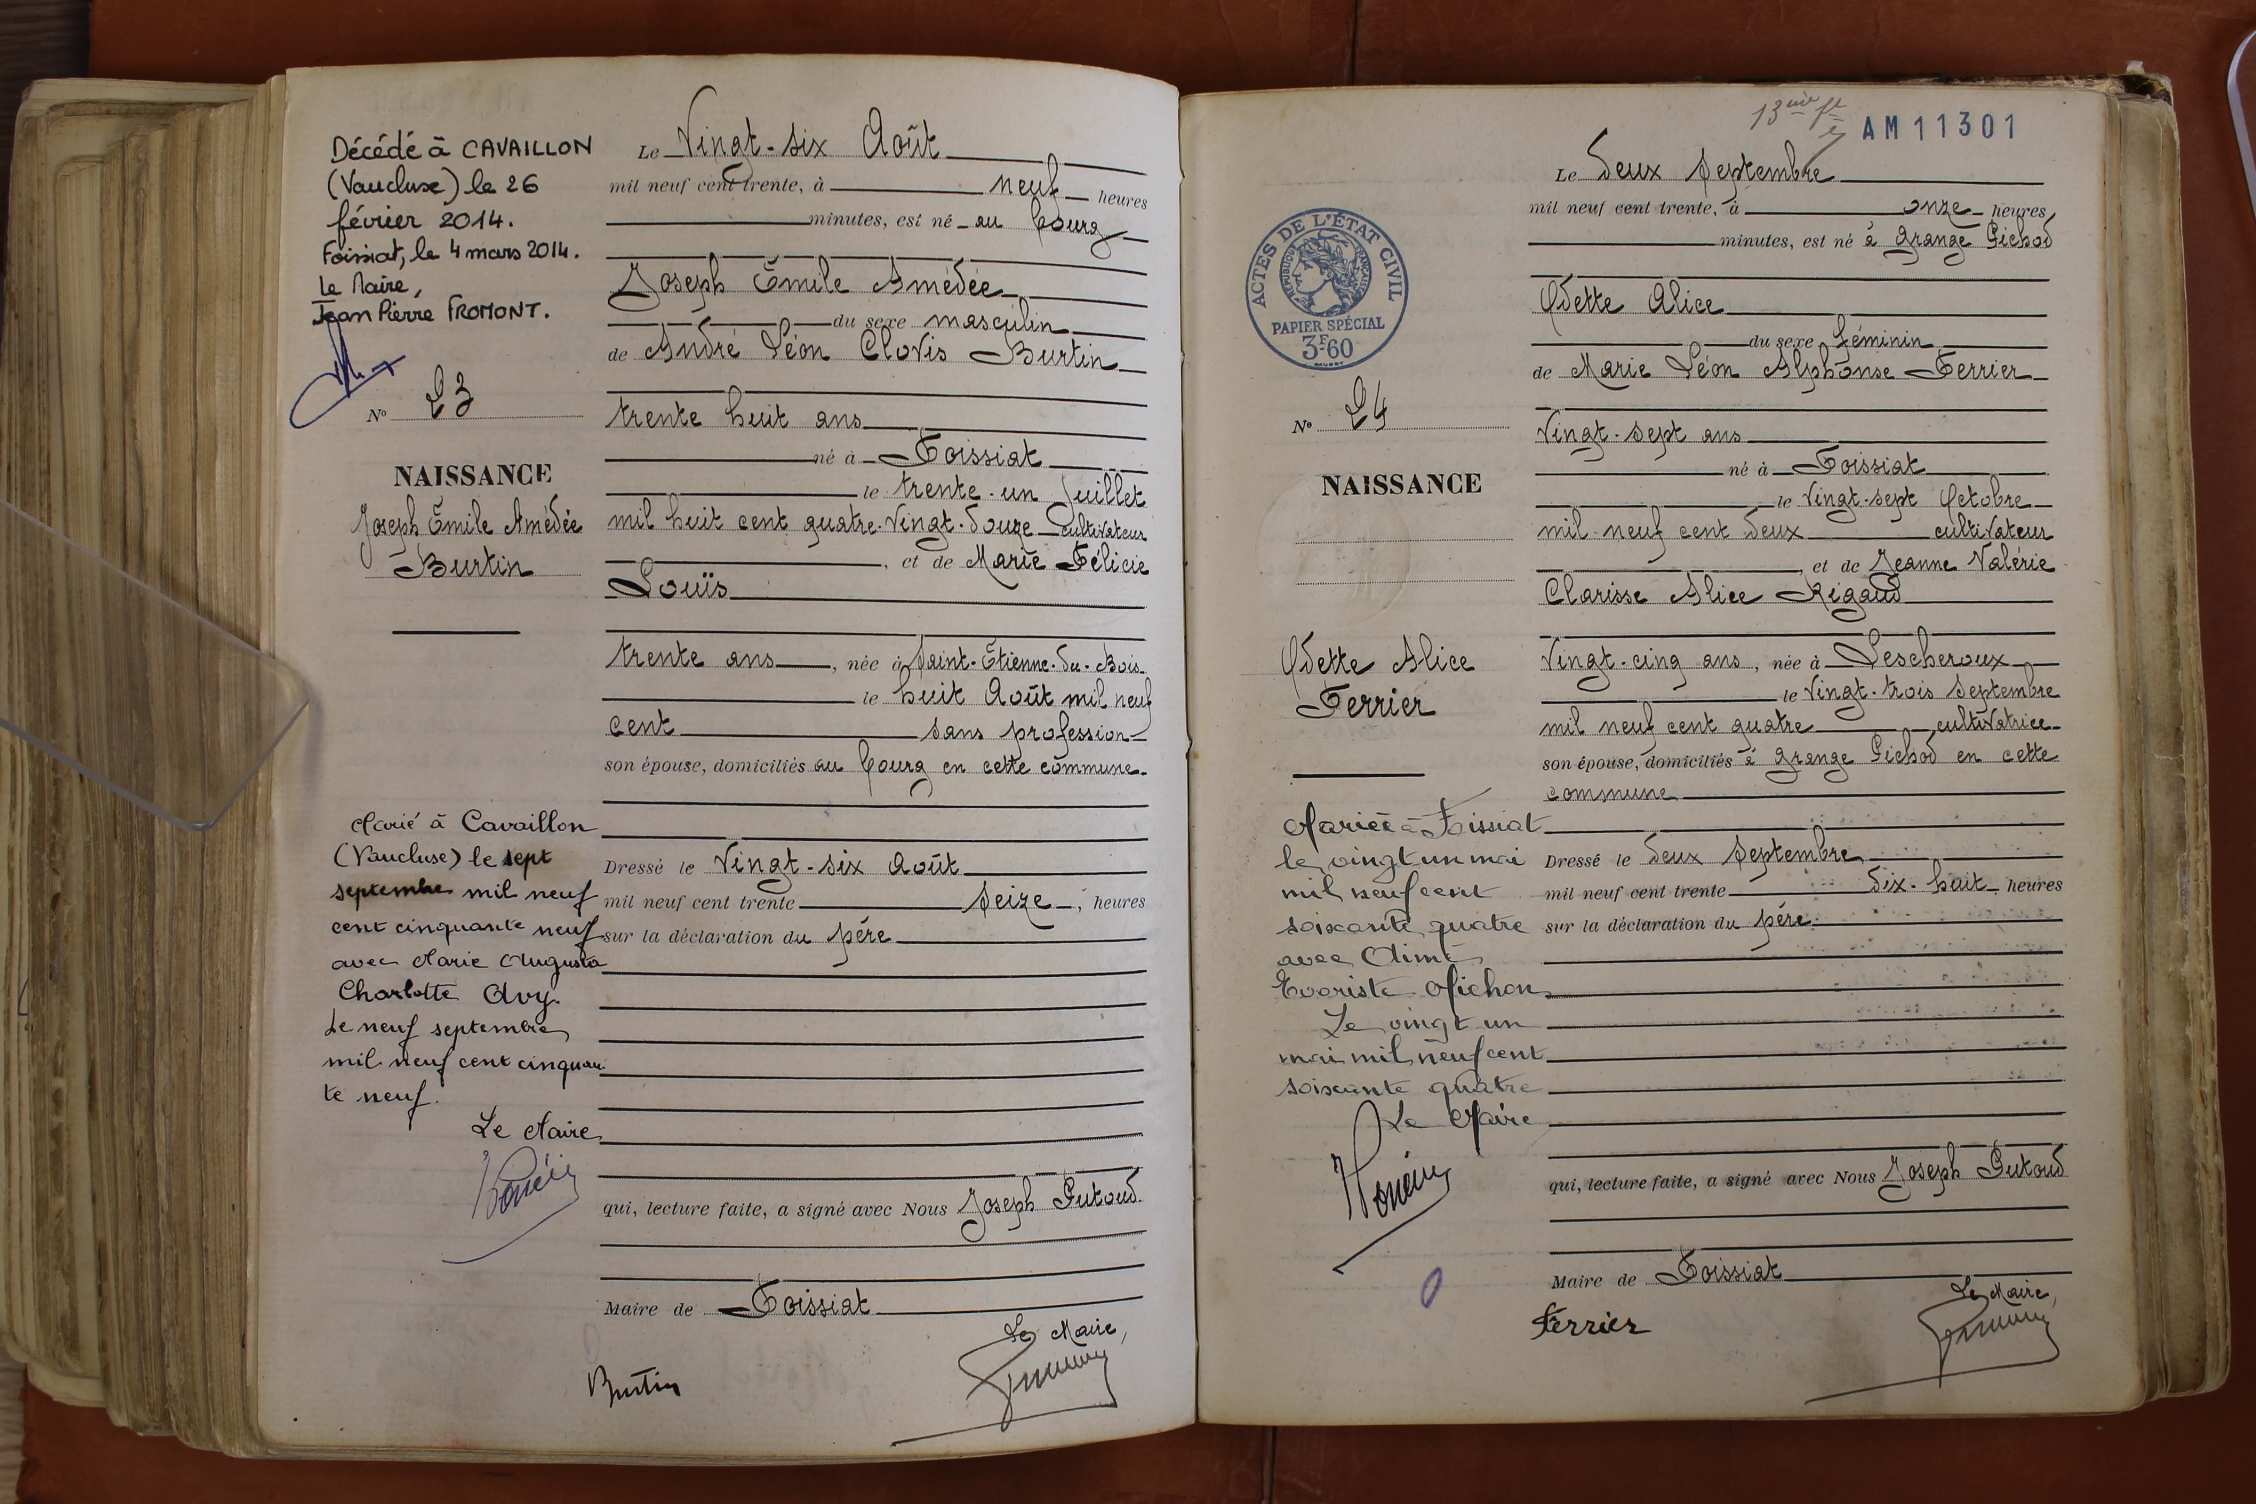 Décédé à CAVAILLON
(Vaucluse) le 26
février 2014.
Foissiat, le 4 mars 2014.
Le Maire,
Jean Pierre FROMONT.
N° 23
NAISSANCE
Joseph Émile Amédée
Burtin
Marié à Cavaillon
(Vaucluse) le sept
septembre mil neuf
cent cinquante neuf
avec Marie Augusta
Charlotte Avy.
Le neuf septembre
mil neuf cent cinquan
te neuf.
Le Maire
Le Vingt-six Août
mil neuf cent trente, à neuf heures
minutes, est né au bourg
Joseph Émile Amédée
du sexe masculin
de André Léon Clovis Burtin
trente huit ans
né à Foissiat
le trente-un Juillet
mil huit cent quatre-vingt-douze cultivateur
, et de Marie Félicie
Louïs
trente ans, née à Saint-Étienne-du-Bois
le huit Août mil neuf
cent sans profession
son épouse, domiciliés au bourg en cette commune.
Dressé le Vingt-six Août
mil neuf cent trente seize, heures
sur la déclaration du père
qui, lecture faite, a signé avec Nous Joseph Putoud.
Maire de Foissiat
Le Maire,
Burtin
13ème fle
AM11301
ACTES DE L'ÉTAT CIVIL
RÉPUBLIQUE FRANÇAISE
PAPIER SPÉCIAL
3F60
N° 24
NAISSANCE
Odette Alice
Ferrier
Mariée à Foissiat
le vingt un mai
mil neuf cent
soixante quatre
avec Aimé
Evariste Michon
Le vingt un
mai mil neuf cent
soixante quatre
Le Maire
Le deux Septembre
mil neuf cent trente, à onze heures
minutes, est né à Grange Pichod
Odette Alice
du sexe féminin
de Marie Léon Alphonse Ferrier
Vingt-sept ans
né à Foissiat
le Vingt-sept Octobre
mil-neuf cent deux cultivateur
, et de Jeanne Valérie
Clarisse Alice Rigaud
Vingt-cinq ans, née à Lescheroux
le Vingt-trois Septembre
mil neuf cent quatre cultivatrice
son épouse, domiciliés à Grange Pichod en cette
commune
Dressé le deux Septembre
mil neuf cent trente dix-huit heures
sur la déclaration du père
qui, lecture faite, a signé avec Nous Joseph Putoud
Maire de Foissiat
Le Maire,
Ferrier